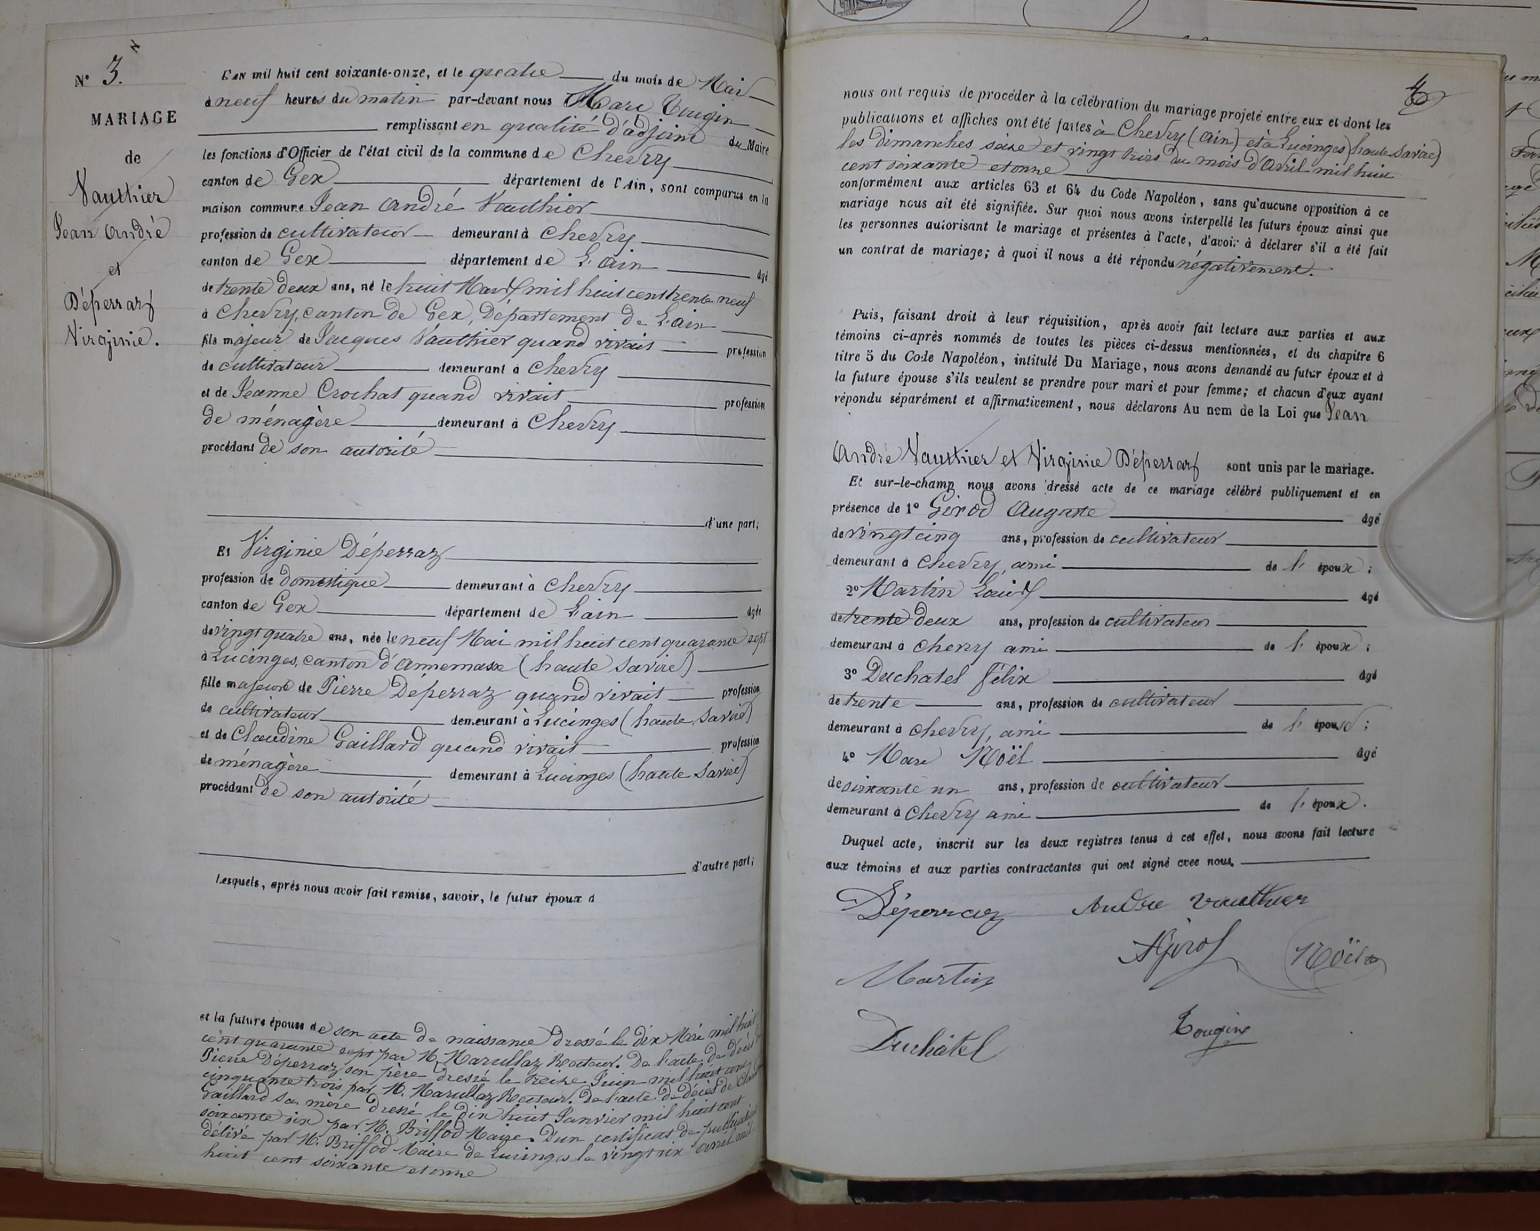 N° 3.
MARIAGE
de
Vauthier
Jean André
et
Déperraz
Virginie.
L'an mil huit cent soixante-onze, et le quatre du mois de Mai
à neuf heures du matin par-devant nous Marc Tougin
remplissant en qualité d'adjoint du Maire
les fonctions d'Officier de l'état civil de la commune de Chevry
canton de Gex département de l'Ain, sont comparus en la
maison commune Jean André Vauthier
profession de cultivateur demeurant à Chevry
canton de Gex département de L'ain âgé
de trente deux ans, né le huit Mars mil huit cent trente neuf
à Chevry, canton de Gex, Département de L'ain
fils majeur de Jacques Vauthier quand vivait profession
de cultivateur demeurant à Chevry
et de Jeanne Crochat quand vivait profession
de ménagère demeurant à Chevry
procédant de son autorité
d'une part;
Et Virginie Déperraz
profession de domestique demeurant à Chevry
canton de Gex département de L'ain âgée
de vingt quatre ans, née le neuf Mai mil huit cent quarante sept
à Lucinges, canton d'annemasse (haute Savoie)
fille majeure de Pierre Déperraz quand vivait profession
de cultivateur demeurant à Lucinges (haute Savoie)
et de Claudine Gaillard quand vivait profession
de ménagère demeurant à Lucinges (haute Savoie)
procédant de son autorité
d'autre part;
Lesquels, après nous avoir fait remise, savoir, le futur époux d
et la future épouse de son acte de naissance dressé le dix Mai mil huit
cent quarante sept par M. Marullaz Recteur. De l'acte de décès de
Pierre Déperraz son père dressé le treize Juin mil huit cent
cinquante trois par M. Marullaz Recteur. De l'acte de décès de
Gaillard sa mère dressé le dix huit Janvier mil huit cent
soixante six par M. Briffod Maire. D'un certificat de publication
délivré par M. Briffod Maire de Lucinges le vingt six avril mil
huit cent soixante et onze
nous ont requis de procéder à la célébration du mariage projeté entre eux et dont les
publications et affiches ont été faites à Chevry (ain) et à Lucinges (haute Savoie)
les dimanches seize et vingt trois du mois d'Avril mil huit
cent soixante et onze
conformément aux articles 63 et 64 du Code Napoléon, sans qu'aucune opposition à ce
mariage nous ait été signifiée. Sur quoi nous avons interpellé les futurs époux ainsi que
les personnes autorisant le mariage et présentes à l'acte, d'avoir à déclarer s'il a été fait
un contrat de mariage; à quoi il nous a été répondu négativement.
Puis, faisant droit à leur réquisition, après avoir fait lecture aux parties et aux
témoins ci-après nommés de toutes les pièces ci-dessus mentionnées, et du chapitre 6
titre 5 du Code Napoléon, intitulé Du Mariage, nous avons demandé au futur époux et à
la future épouse s'ils veulent se prendre pour mari et pour femme; et chacun d'eux ayant
répondu séparément et affirmativement, nous déclarons Au nom de la Loi que Jean
André Vauthier et Virginie Déperraz sont unis par le mariage.
Et sur-le-champ nous avons dressé acte de ce mariage célébré publiquement et en
présence de 1° Girod Auguste âgé
de vingt cinq ans, profession de cultivateur
demeurant à Chevry, ami de l' époux;
2° Martin Louis âgé
de trente deux ans, profession de cultivateur
demeurant à chevry ami de l' époux;
3° Duchatel félix âgé
de trente ans, profession de cultivateur
demeurant à chevry, ami de l' épouse;
4° Marc Noël âgé
de soixante un ans, profession de cultivateur
demeurant à chevry ami de l' époux.
Duquel acte, inscrit sur les deux registres tenus à cet effet, nous avons fait lecture
aux témoins et aux parties contractantes qui ont signé avec nous.
Déperraz André Vauthier
AGirod Noël
Martin
Tougin
Duchâtel